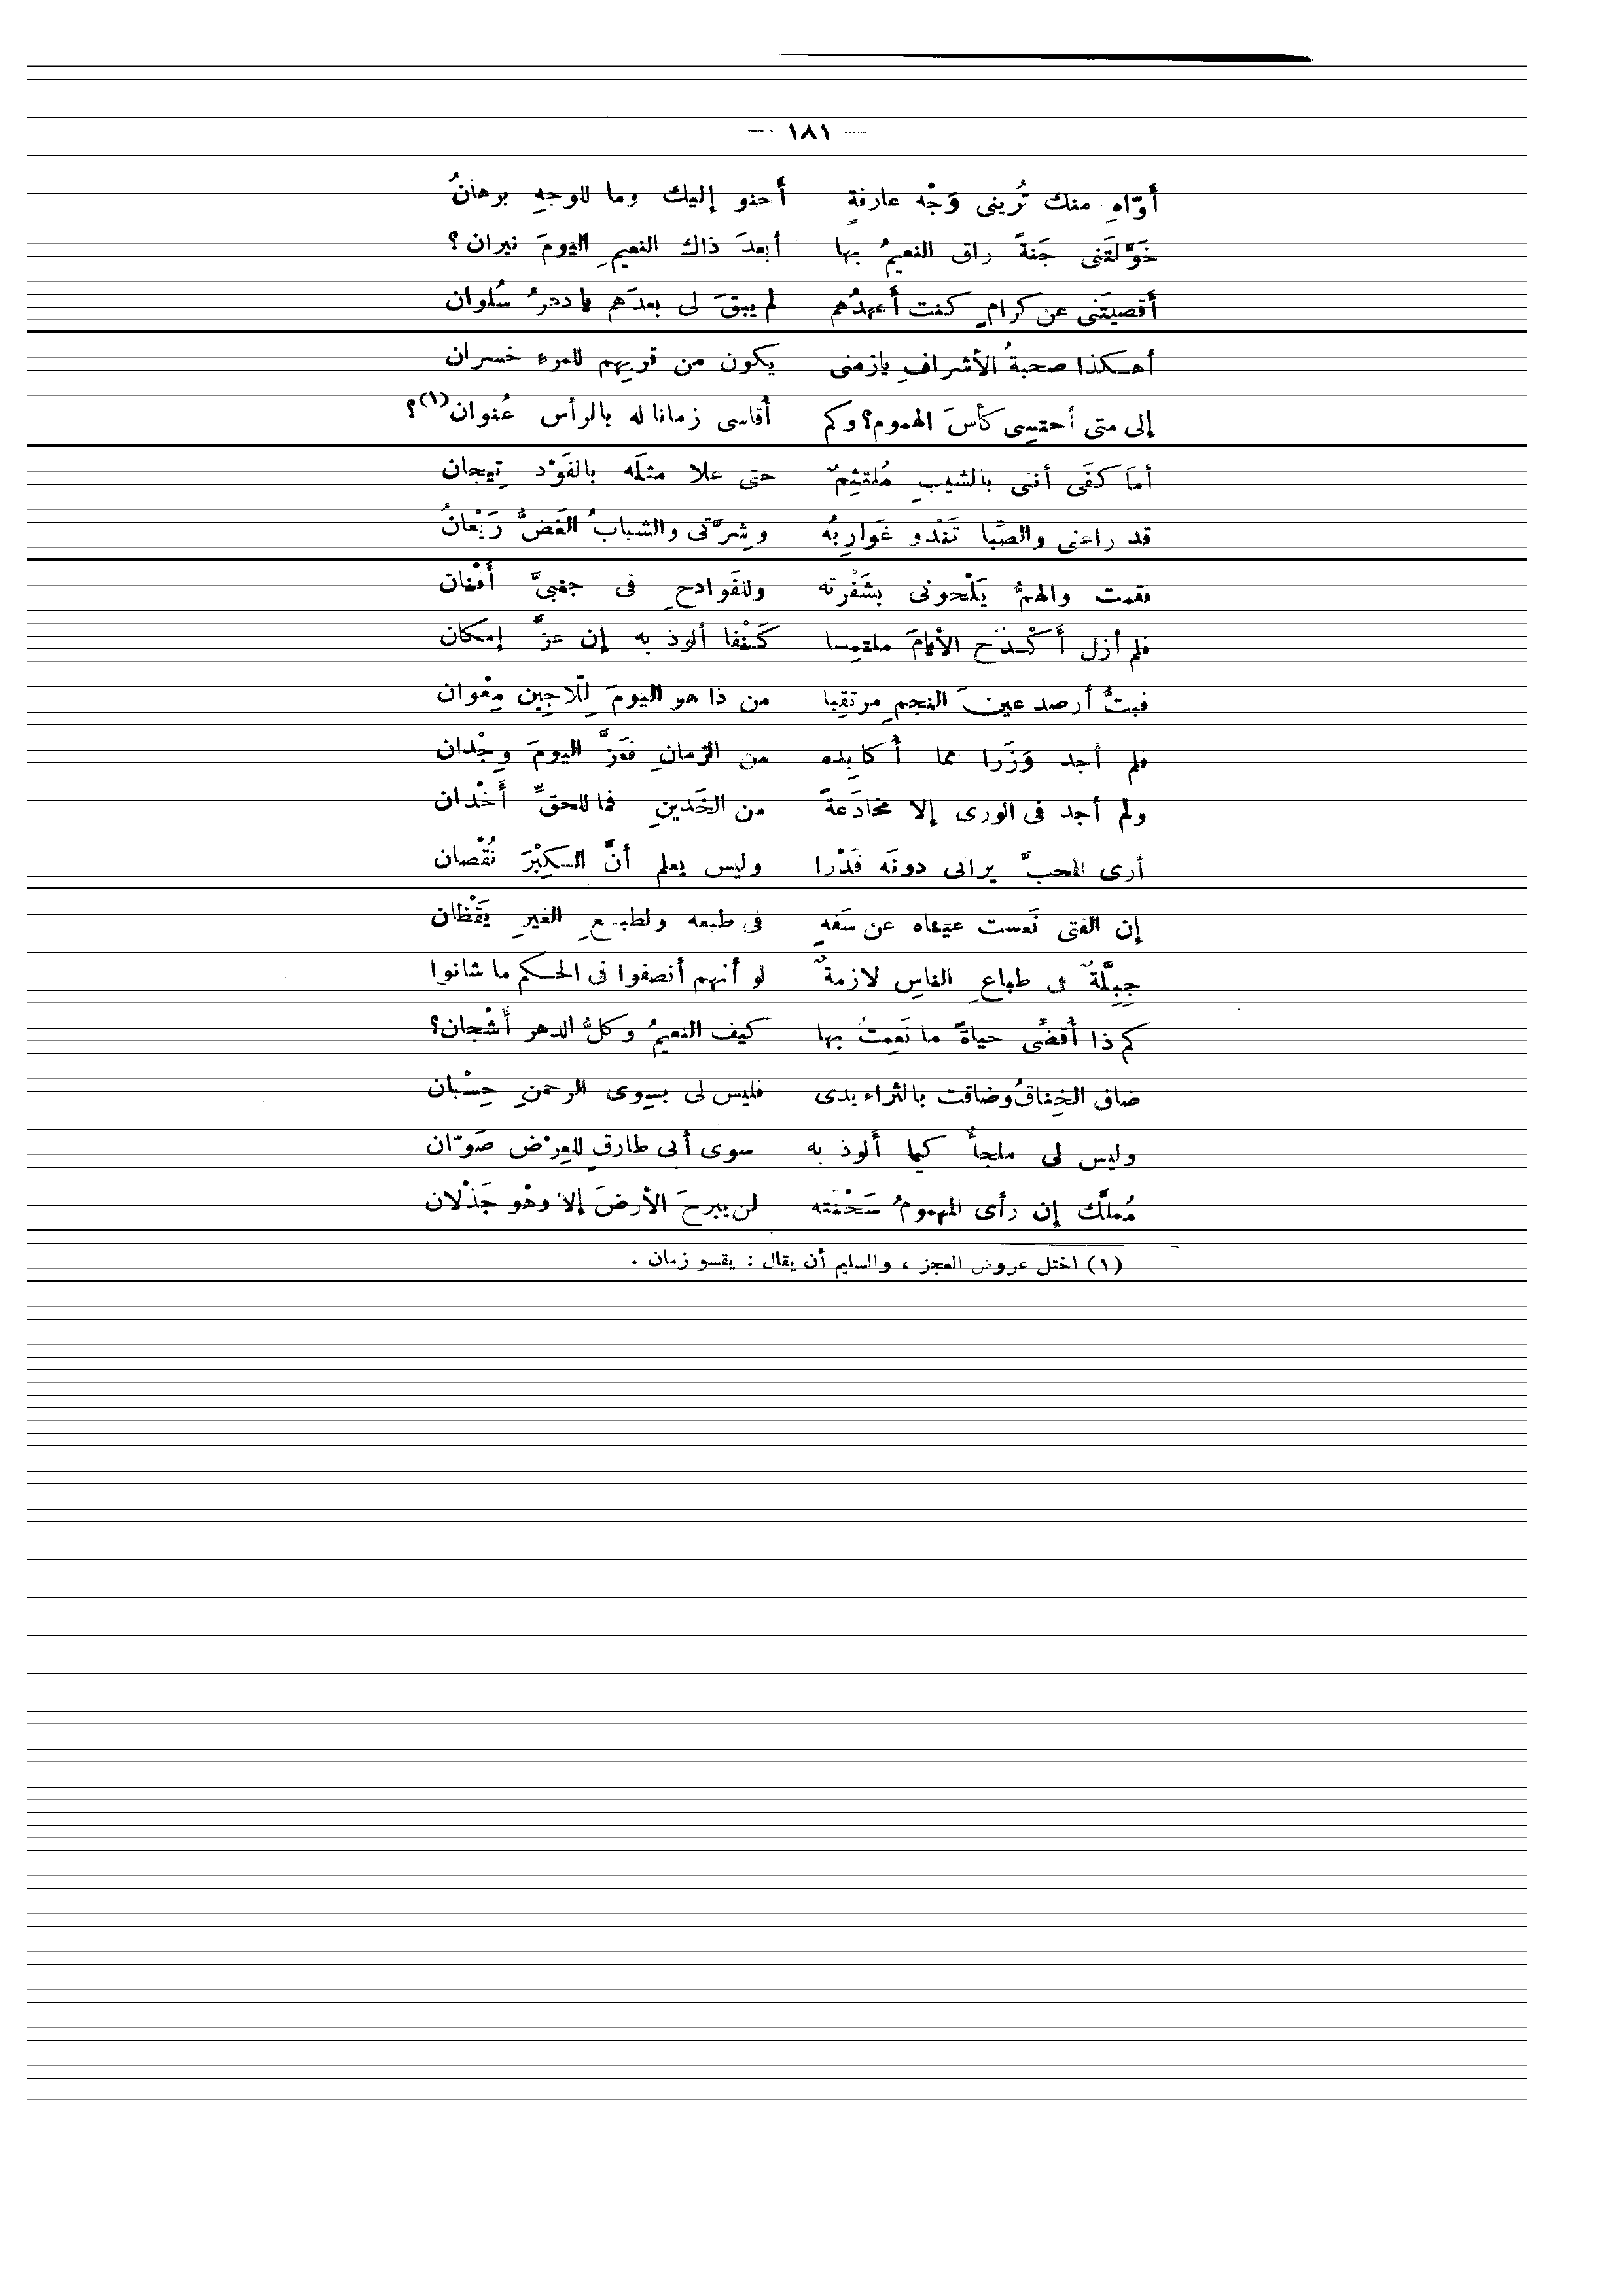 — ١٨١ —
أَوّاهِ منك تُرينى وَجْه عارفةٍ أَحنو إليك وما للوجهِ برهانُ
خَوَّلتَنى جَنةً راق النعيمُ بها أبعدَ ذاك النعيمِ اليومَ نيران ؟
أقصيتَنى عن كرامٍ كنت أعهدُهم لم يبقَ لى بعدَهم يا دهرُ سُلوان
أهكذا صحبةُ الأشرافِ يازمنى يكون من قربِهم للمرءِ خسران
إلى متى أحتسِى كأسَ الهموم؟ وكم أُقاسى زمانا له بالرأس عُنوان(١)؟
أمَا كفَى أننى بالشيبِ مُلتثِمٌ حتى علا مثلَه بالفَوْد تِيجان
قد راعنى والصِّبا تَغْدو غَوارِبُه وشِرَّتى والشبابُ الغَضُّ رَيْعانُ
نقمت والهمُّ يَلْحونى بشَفْرته وللفَوادحِ فى جنبىَّ أَفْنان
فلم أزل أَكْدَح الأيامَ ملتمِسا كَنْفا ألوذ به إن عزَّ إمكان
فبتُّ أرصد عينَ النجمِ مرتقِبا من ذا هو اليومَ لِلّاجِين مِعْوان
فلم أجد وَزَرا مما أُكابِده من الزمانِ فعَزَّ اليومَ وِجْدان
ولم أجد فى الورى إلا مخادَعةً من الخَدينِ فما للحقِّ أَخْدان
أرى المحبَّ يرانى دونَه قَدْرا وليس يعلم أنَّ الكِبْرَ نُقْصان
إن الفتى نَعست عيناه عن سَفهٍ فى طبعه ولطبعِ الغيرِ يَقْظان
جِبِلَّةٌ فى طباعِ الناسِ لازمةٌ لو أنهم أنصفوا فى الحكم ما شانوا
كم ذا أُقضِّى حياةً ما نَعِمتُ بها كيف النعيمُ وكلُّ الدهر أَشْجان؟
ضاق الخِناقُ وضاقت بالثراء يدى فليس لى بسِوى الرحمنِ حِسْبان
وليس لى ملجأٌ كيما أَلوذ به سوى أبى طارقٍ للعِرْض صَوّان
مُملَّك إن رأى المهمومُ سَحْنته لن يبرحَ الأرضَ إلا وهْو جَذْلان
(١) اختل عروض العجز ، والسليم أن يقال : يقسو زمان .